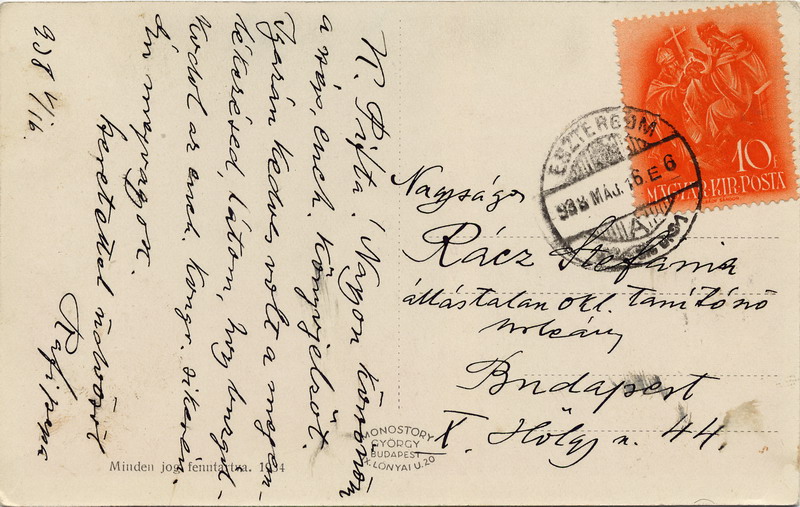 K. Pifta! Nagyon köszönöm
a szép, ench. könyvjelzőt.
Igazán kedves volt a megem-
lékezésed. Látom, hogy buzgól-
kodol az ench. kongr. sikerén.
Én megvagyok.
Szeretettel üdvözöl
938 V/16.
ESZTERGOM
938 MÁJ. 16. E 6
A
10 f
MAGYAR·KIR·POSTA
Nagyságos
Rácz Stefánia
állástalan okl. tanítónő
Budapest
X. Hölgy u. 44.
MONOSTORY
GYÖRGY
BUDAPEST
IX. LÓNYAI U. 20
Minden jog fenntartva. 1934